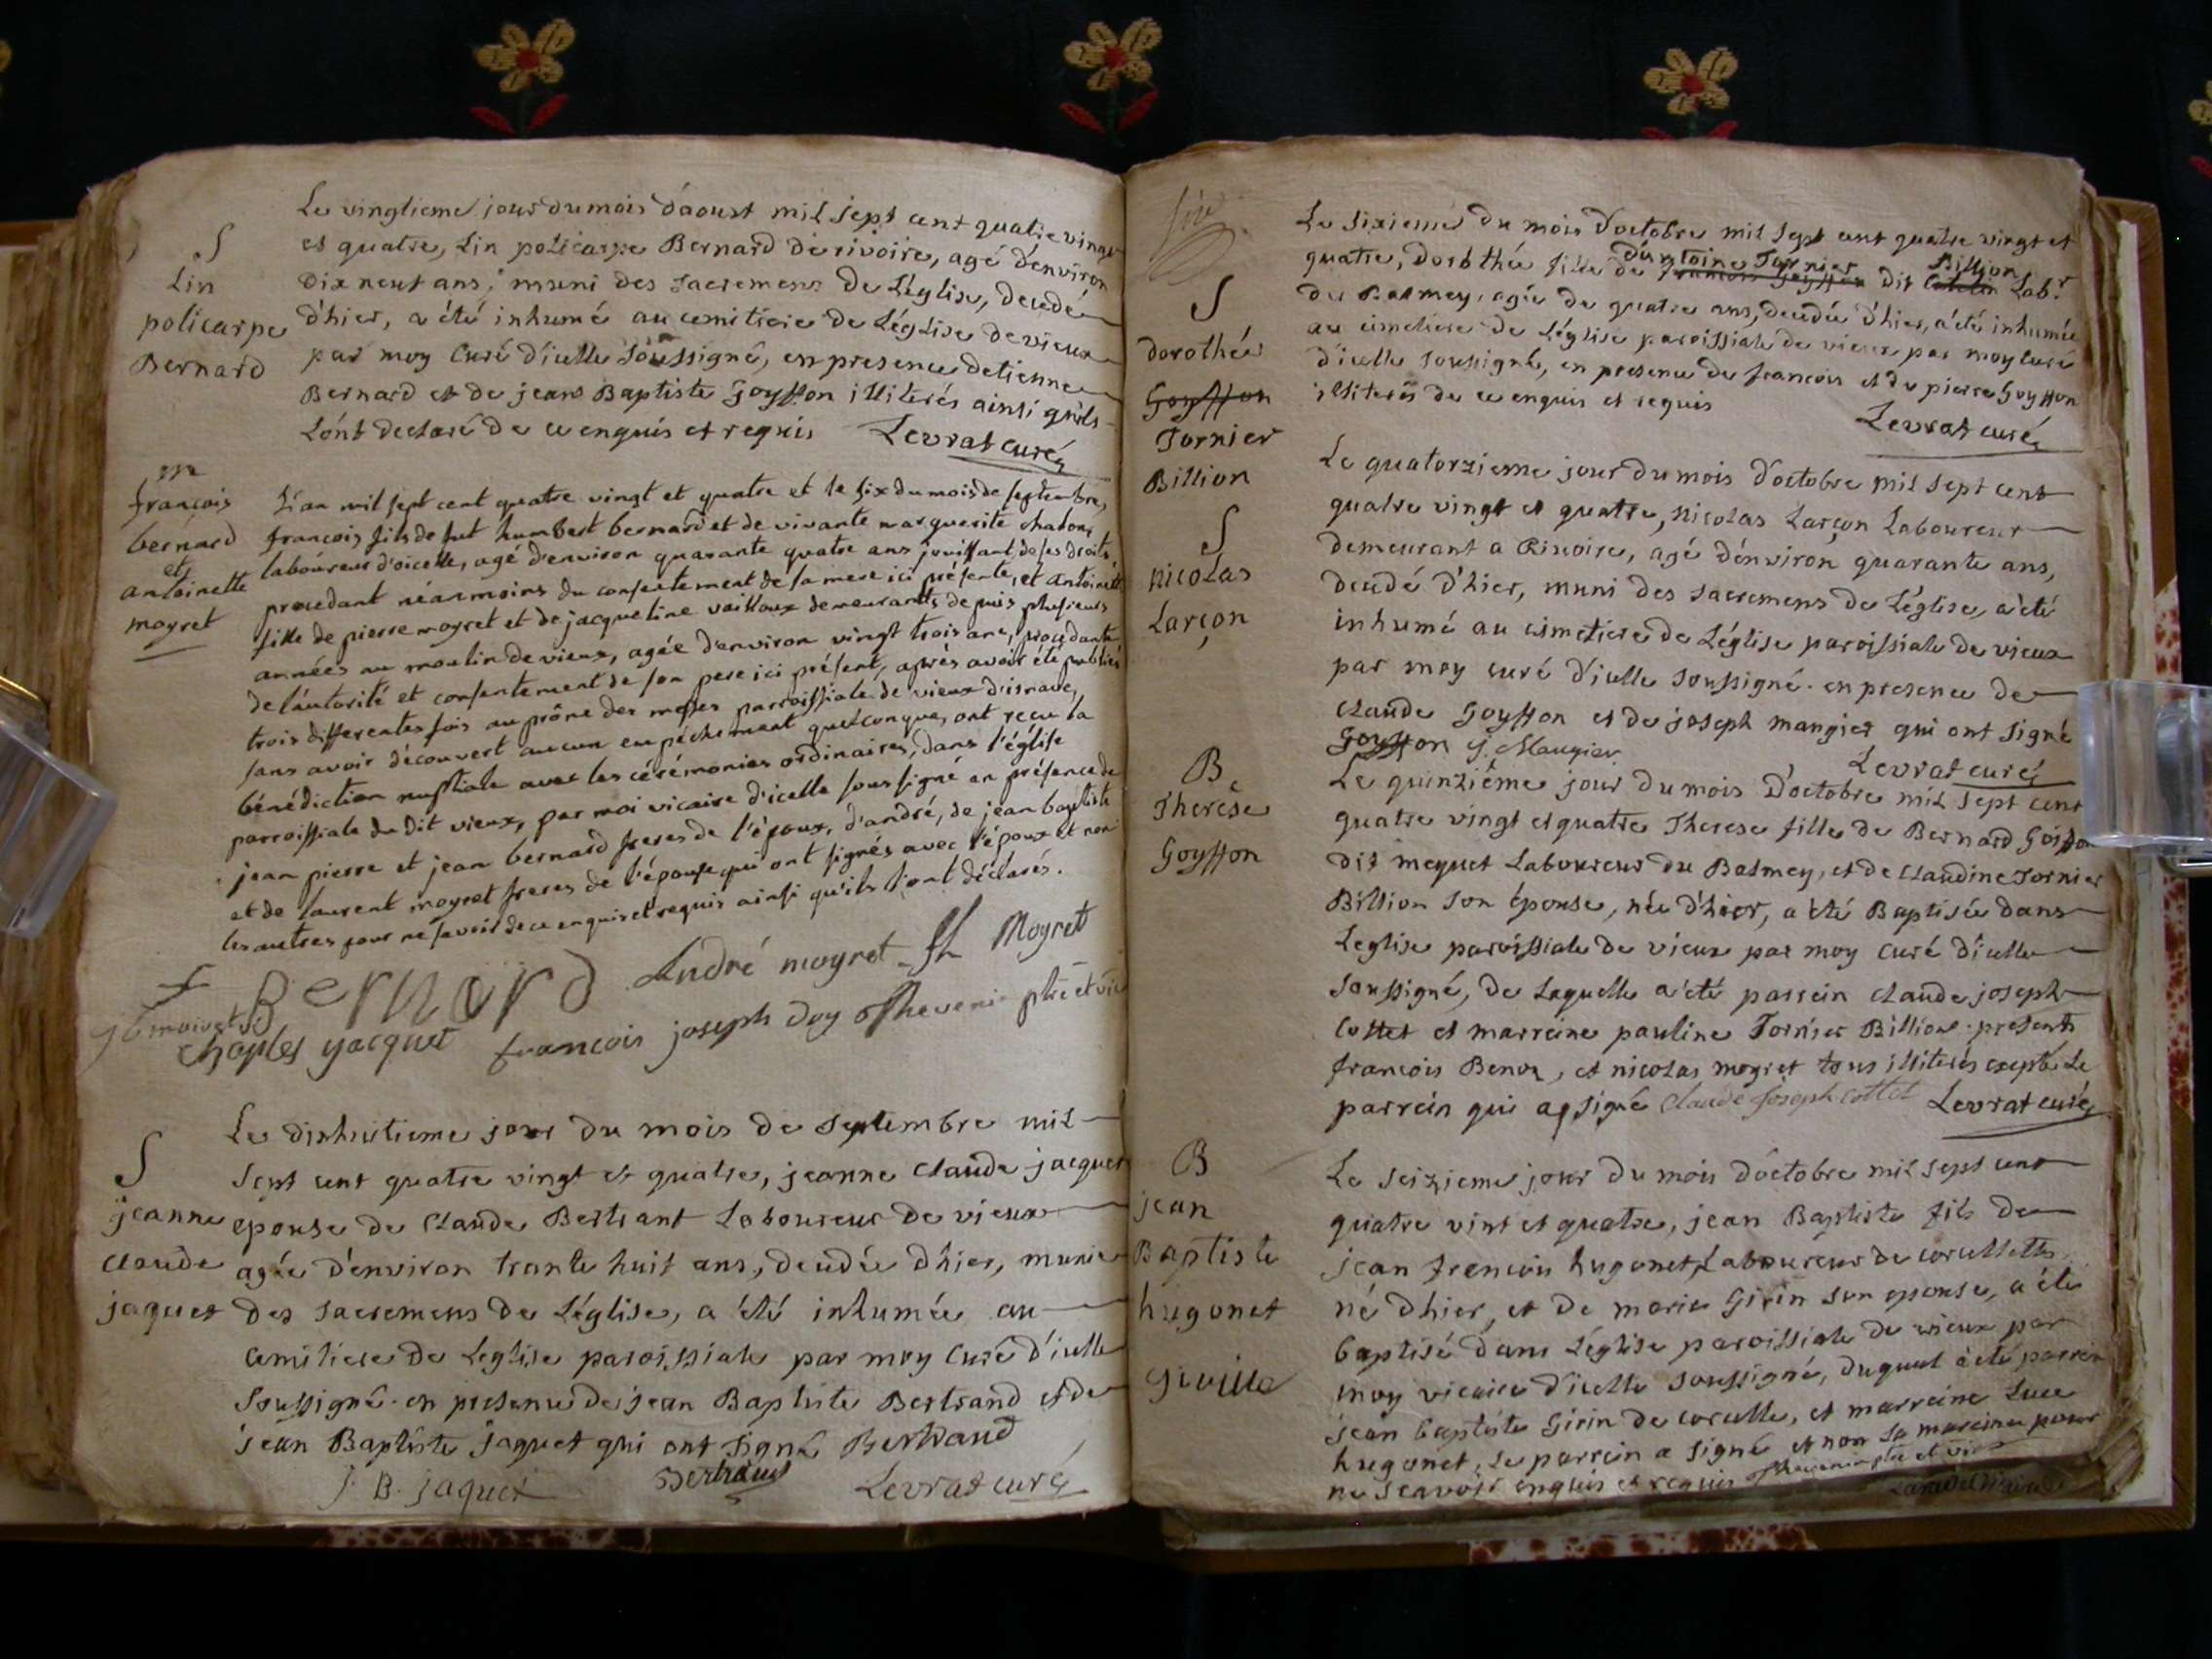 S
Lin
policarpe
Bernard
Le vingtieme jour du mois d'aoust mil sept cent quatre vingt
et quatre, Lin policarpe Bernard de rivoire, agé d'environ
dix neuf ans, muni des sacremens de L'église, decedé
d'hier, a été inhumé au cemitiere de L'église de vieux
par moy Curé d'icelle soussigné, en presence detienne
Bernard et de jean Baptiste Goyffon illiterés ainsi qu'ils
L'ont declaré de ce enquis et requis Levrat curé
m
françois
bernard
et
antoinette
moyret
L'an mil sept cent quatre vingt et quatre et le six du mois de septembre,
françois fils de fut humbert bernard et de vivante marguerite chabon,
laboureur d'oicelle, agé d'environ quarante quatre ans jouissant de ses droits
procedant néanmoins du consentement de sa mere ici présente, et antoinette
fille de pierre moyret et de jacqueline vailloux demeurants depuis plusieurs
années au moulin de vieux, agée d'environ vingt trois ans, procedante
de l'autorité et consentement de son pere ici présent, après avoir été publiés
trois differentes fois au prône des messes parroissiale de vieux d'isnave,
sans avoir découvert aucun empechement quelconque, ont reçu la
bénédiction nuptiale avec les cérémonies ordinaires, dans l'église
parroissiale du dit vieux, par moi vicaire d'icelle soussigné en présence de
jean pierre et jean bernard freres de l'époux, d'andré, de jean baptiste
et de laurent moyret freres de l'épouse qui ont signés avec l'époux et non
les autres pour ne savoir de ce enquis et requis ainsi qu'ils l'ont déclarés.
f Bernard André moyret Moyret
jb moiret
Charles yacquet francois joseph Doy Thevenin ptre et vic
S
jeanne
claude
jaquet
Le dixhuitieme jour du mois de septembre mil
sept cent quatre vingt et quatre, jeanne Claude jacquet
epouse de Claude Bertrant Laboureur de vieux
agée d'environ trante huit ans, decedée d'hier, munie
des sacremens de L'église, a été inhumée au
cemitiere de L'eglise paroissiale par moy Curé d'icelle
soussigné en presence de jean Baptiste Bertrand et de
jean Baptiste jaquet qui ont signé Bertrand
J. B. jaquet Bertrand Levrat curé
S
dorothée
Goyffon
Tornier
Billion
Le sixieme du mois d'octobre mil sept cent quatre vingt et
d'antoine Tornier Billion
quatre, dorothée fille de francois Goyffon dit Labr
du Balmey, agée de quatre ans, decedée d'hier, a été inhumée
au cimetiere de L'église paroissiale de vieux par moy curé
d'icelle soussigné, en presence de francois et de pierre Goyffon
illiterés de ce enquis et requis
Levrat curé
S
nicolas
Larçon
Le quatorzieme jour du mois d'octobre mil sept cent
quatre vingt et quatre, nicolas Larçon Laboureur
demeurant a Rivoire, agé d'environ quarante ans,
decedé d'hier, muni des sacremens de L'église, a été
inhumé au cismetiere de L'église paroissiale de vieux
par moy curé d'icelle soussigné en presence de
claude Goyffon et de joseph mangier qui ont signé
Goyffon J. Maugier
Levrat curé
B
Therèse
Goyffon
Le quinzième jour du mois d'octobre mil sept cent
quatre vingt et quatre Therese fille de Bernard Goiffon
dit mequet Laboureur du Balmey, et de Claudine Tornier
Billion son épouse, née d'hier, a été Baptisée dans
L'eglise paroissiale de vieux par moy curé d'icelle
soussigné, de Laquelle a été parrein claude joseph
Cottet et marreine pauline Tornier Billion presents
francois Benoz, et nicolas moyret tous illiterés excepté Le
parrein qui a signé Claude Joseph Cottet Levrat curé
B
jean
Baptiste
hugonet
Le seizieme jour du mois d'octobre mil sept cent
quatre vint et quatre, jean Baptiste fils de
jean francois hugonet, Laboureur de corcellette,
né d'hier, et de marie Girin son epouse, a été
baptisé dans L'église paroissiale de vieux par
moy vicaire d'icelle soussigné, duquel a été parrein
jean baptiste Girin de corcelle, et marreine Luce
hugonet, Le parrein a signé et non La marreine pour
ne scavoir enquis et requis Thevenin ptre et vic